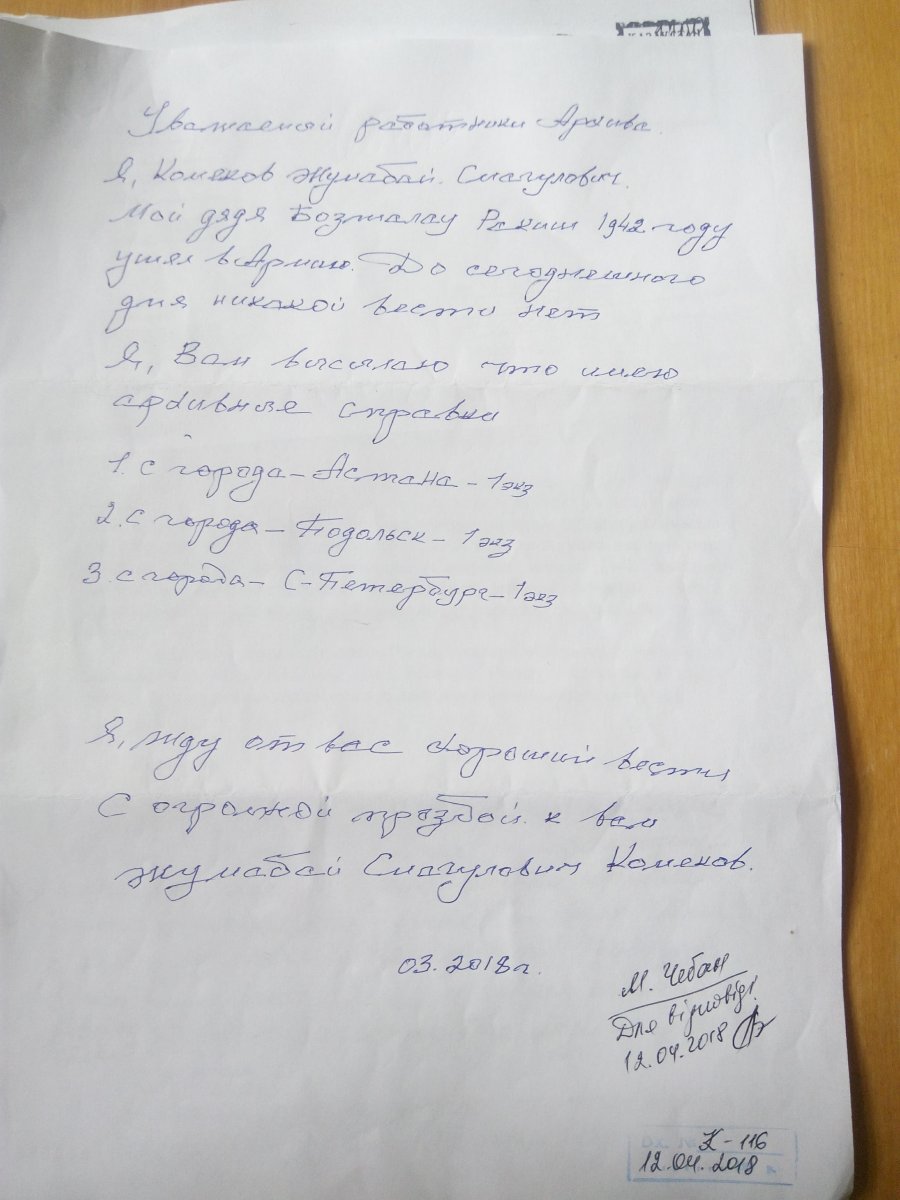 Уважаемой работники Архива.
Я, Комеков Жумабай. Смагулович.
Мой дядя Бозжалау Рекиш 1942 году
ушел в Армию. До сегоднешного
дня никакой вести нет
Я, Вам высылаю что имею
архивные справки
1. с города - Астана - 1 экз
2. с города - Подольск - 1 экз
3. с города - С-Петербург - 1 экз
Я, жду от вас хороший вести
С огромной прозбой к вам
Жумабай Смагулович Комеков.
03.2018г.
М. Чебан
Для відповіді
12.04.2018
К-116
12.04.2018